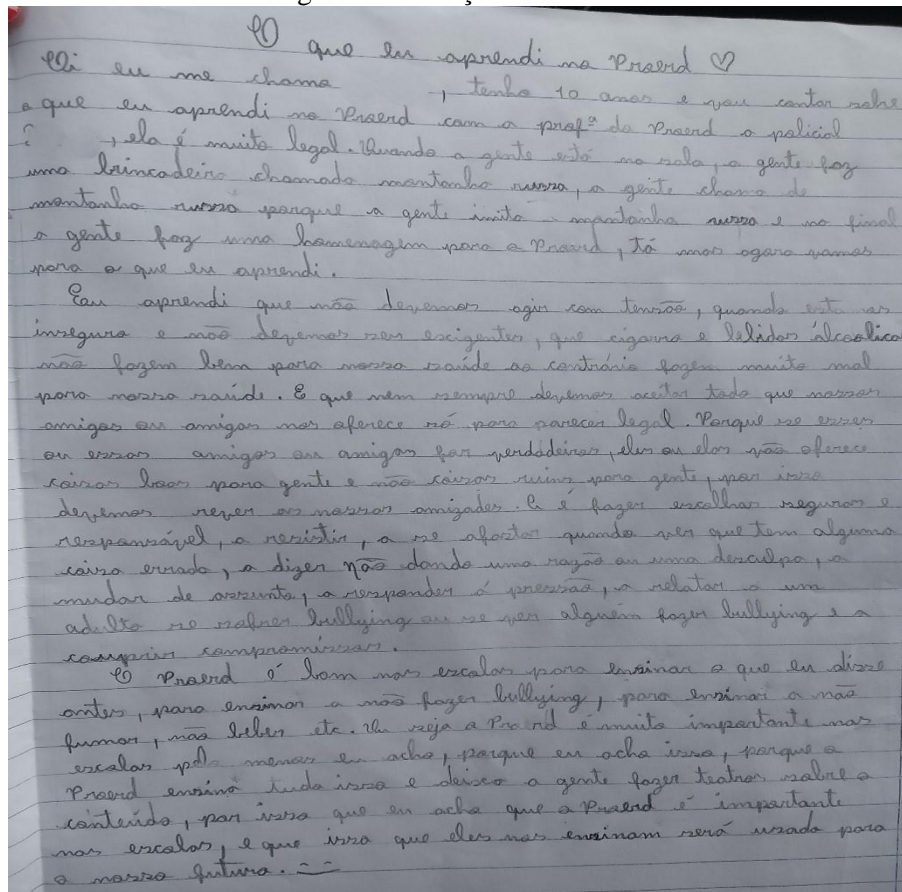 O que eu aprendi no Proerd ♡
Oi eu me chamo , tenho 10 anos e vou contar sobre
o que eu aprendi no Proerd com a profª do Proerd a policial
? , ela é muito legal. Quando a gente está na sala, a gente faz
uma brincadeira chamada montanha russa, a gente chama de
montanha russa porque a gente imita a montanha russa e no final
a gente faz uma homenagem para o Proerd, tá mas agora vamos
para o que eu aprendi.
Eu aprendi que não devemos agir com tensão, quando está as
inseguro e não devemos ser exigentes, que cigarro e bebidas álcoolica
não fazem bem para nossa saúde ao contrário fazem muito mal
para nossa saúde. E que nem sempre devemos aceitar tudo que nossos
amigos ou amigas nos oferece só para parecer legal. Porque se esses
ou essas amigos ou amigas for verdadeiros, eles ou elas vão oferece
coisas boas para gente e não coisas ruins para gente, por isso
devemos rever as nossas amizades. E é fazer escolhas seguras e
responsável, a resistir, a se afastar quando ver que tem alguma
coisa errada, a dizer não dando uma razão ou uma desculpa, a
mudar de assunto, a responder á pressão, a relatar a um
adulto se sofrer bullying ou se ver alguém fazer bullying e a
cumprir compromissos.
O Proerd é bom nas escolas para ensinar o que eu disse
antes, para ensinar a não fazer bullying, para ensinar a não
fumar, não beber etc. Ou seja o Proerd é muito importante nas
escolas pelo menos eu acho, porque eu acho isso, porque o
Proerd ensina tudo isso e deixa a gente fazer teatros sobre o
conteúdo, por isso que eu acho que o Proerd é importante
nas escolas, e que isso que eles nos ensinam será usado para
o nosso futuro.